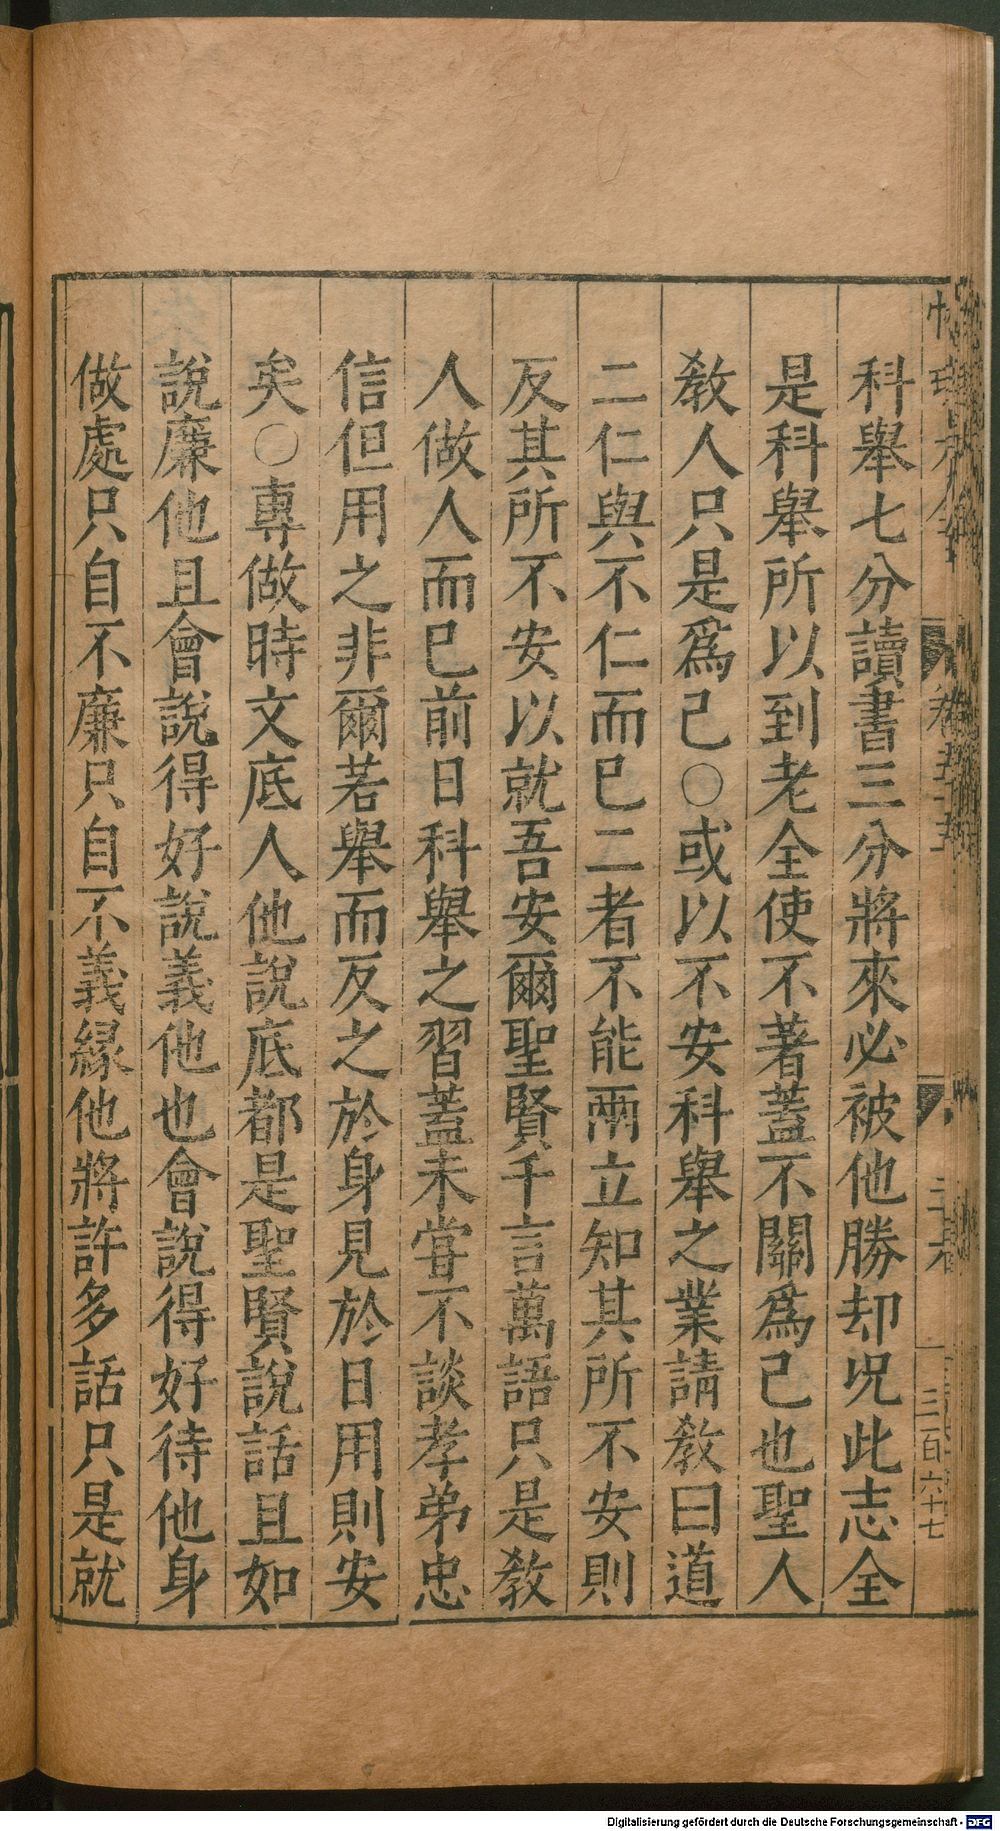 科舉七分讀書三分將來必被他勝却況此志全
是科舉所以到老全使不著蓋不關爲己也聖人
教人只是爲己○或以不安科舉之業請教曰道
二仁與不仁而已二者不能兩立知其所不安則
反其所不安以就吾安爾聖賢千言萬語只是教
人做人而已前日科舉之習蓋未嘗不談孝弟忠
信但用之非爾若舉而反之於身見於日用則安
矣○專做時文底人他說底都是聖賢說話且如
說廉他且會說得好說義他也會說得好待他身
做處只自不廉只自不義緣他將許多話只是就
三百六十七
Digitalisierung gefördert durch die Deutsche Forschungsgemeinschaft - DFG